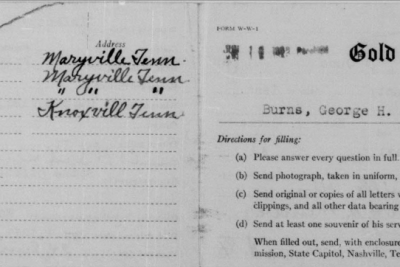 Address
Maryville Tenn.
Maryville Tenn.
" " "
Knoxvill Tenn
FORM W-W-1
Gold
Burns, George H.
Directions for filling:
(a) Please answer every question in full.
(b) Send photograph, taken in uniform,
(c) Send original or copies of all letters
clippings, and all other data bearing
(d) Send at least one souvenir of his serv
When filled out, send, with enclosure
mission, State Capitol, Nashville, Te